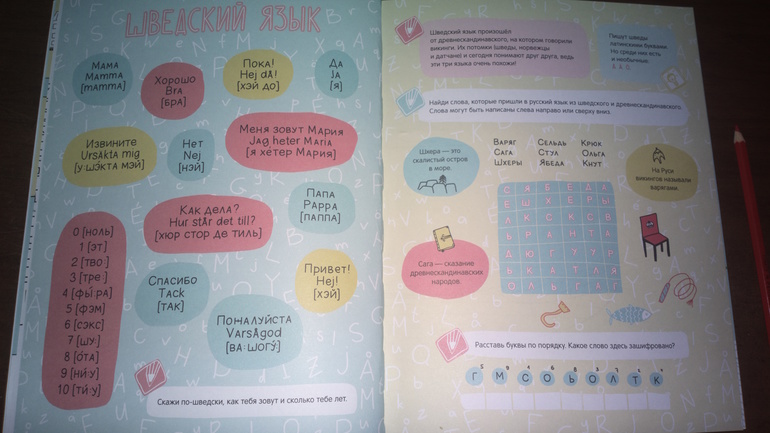 ШВЕДСКИЙ ЯЗЫК
Мама
Mamma
[mamma]
Хорошо
Bra
[бра]
Пока!
Hej då!
[хэй до]
Да
Ja
[я]
Извините
Ursäkta mig
[у:шэкта мэй]
Нет
Nej
[нэй]
Меня зовут Мария
Jag heter Maria
[я хетер Мария]
Как дела?
Hur står det till?
[хюр стор де тиль]
Папа
Pappa
[паппа]
0 [ноль]
1 [эт]
2 [тво:]
3 [тре:]
4 [фы́:ра]
5 [фэм]
6 [сэкс]
7 [шу:]
8 [о́та]
9 [ни́:у]
10 [ти́:у]
Спасибо
Tack
[так]
Привет!
Hej!
[хэй]
Пожалуйста
Varsågod
[ва:шогу́:]
Скажи по-шведски, как тебя зовут и сколько тебе лет.
Шведский язык произошёл
от древнескандинавского, на котором говорили
викинги. Их потомки (шведы, норвежцы
и датчане) и сегодня понимают друг друга, ведь
эти три языка очень похожи!
Пишут шведы
латинскими буквами.
Но среди них есть
и необычные:
Найди слова, которые пришли в русский язык из шведского и древнескандинавского.
Слова могут быть написаны слева направо или сверху вниз.
Шхера — это
скалистый остров
в море.
Варяг Сельдь Крюк
Сага Стул Ольга
Шхеры Ябеда Кнут
На Руси
викингов называли
варягами.
С Я Б Е Д А
Е Ш Х Е Р Ы
Л К С К С В
Ь Р А Н Т А
Д Ю Г У У Р
Ь К А Т Л Я
О Л Ь Г А Г
Сага — сказание
древнескандинавских
народов.
Расставь буквы по порядку. Какое слово здесь зашифровано?
Г М С О Ь О Л Т К